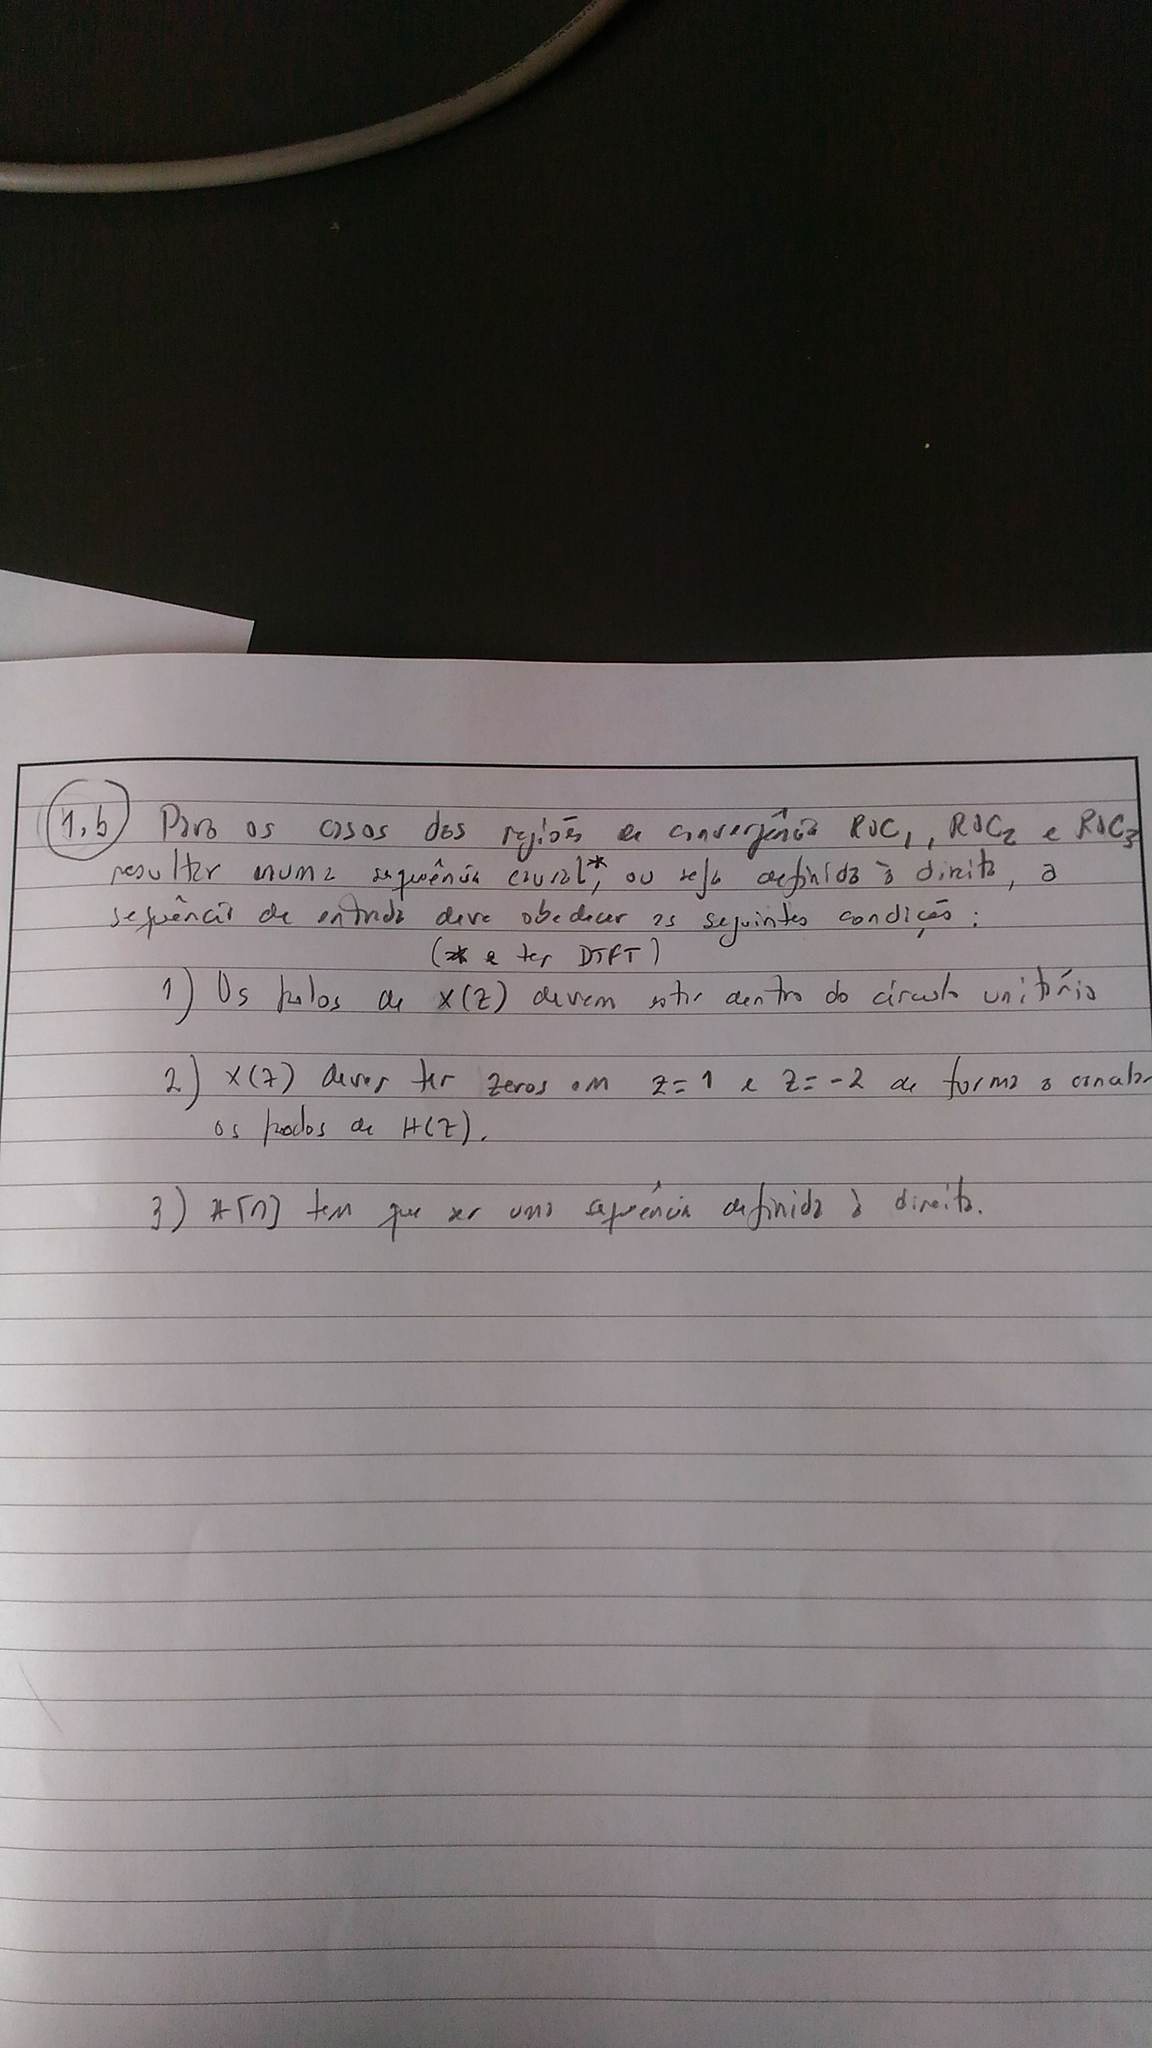 1.b Para os casos das regiões de convergência ROC1, ROC2 e ROC3
resulter numa sequência causal*, ou seja definida à direita, a
sequência de entrada deve obedecer as seguintes condições:
(* e ter DTFT)
1) Os polos de X(Z) devem estar dentro do círculo unitário
2) X(Z) deve ter zeros em Z=1 e Z=-2 de forma a cancelar
os polos de H(Z).
3) x[n] tem que ser uma sequência definida à direita.